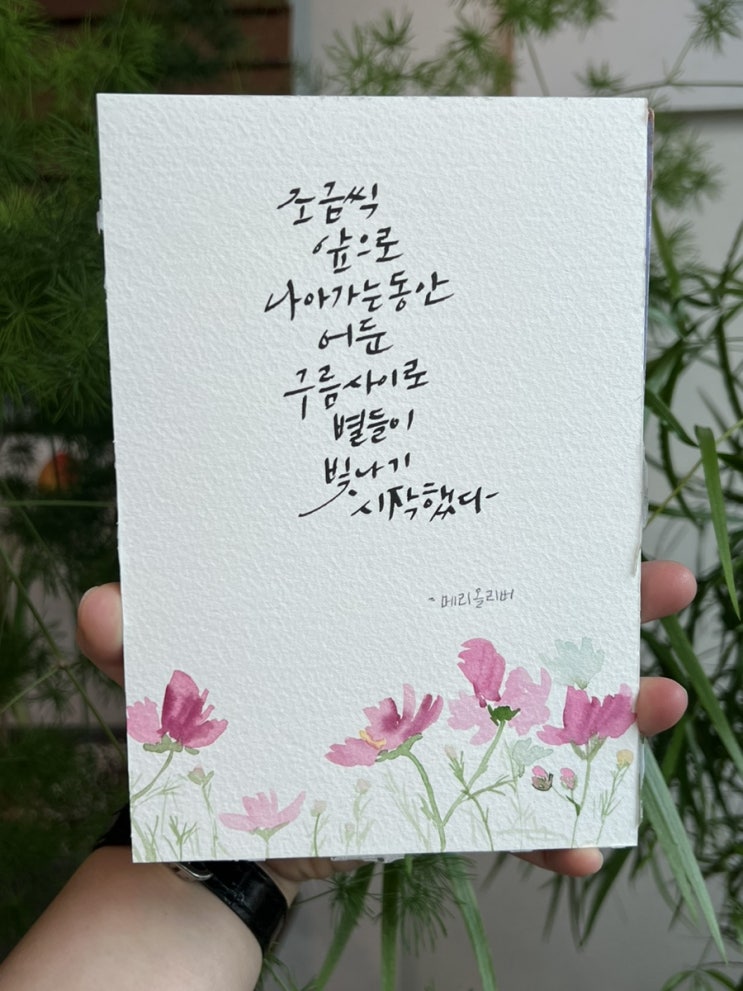 조금씩
앞으로
나아가는동안
어둔
구름사이로
별들이
빛나기
시작했다
-메리올리버